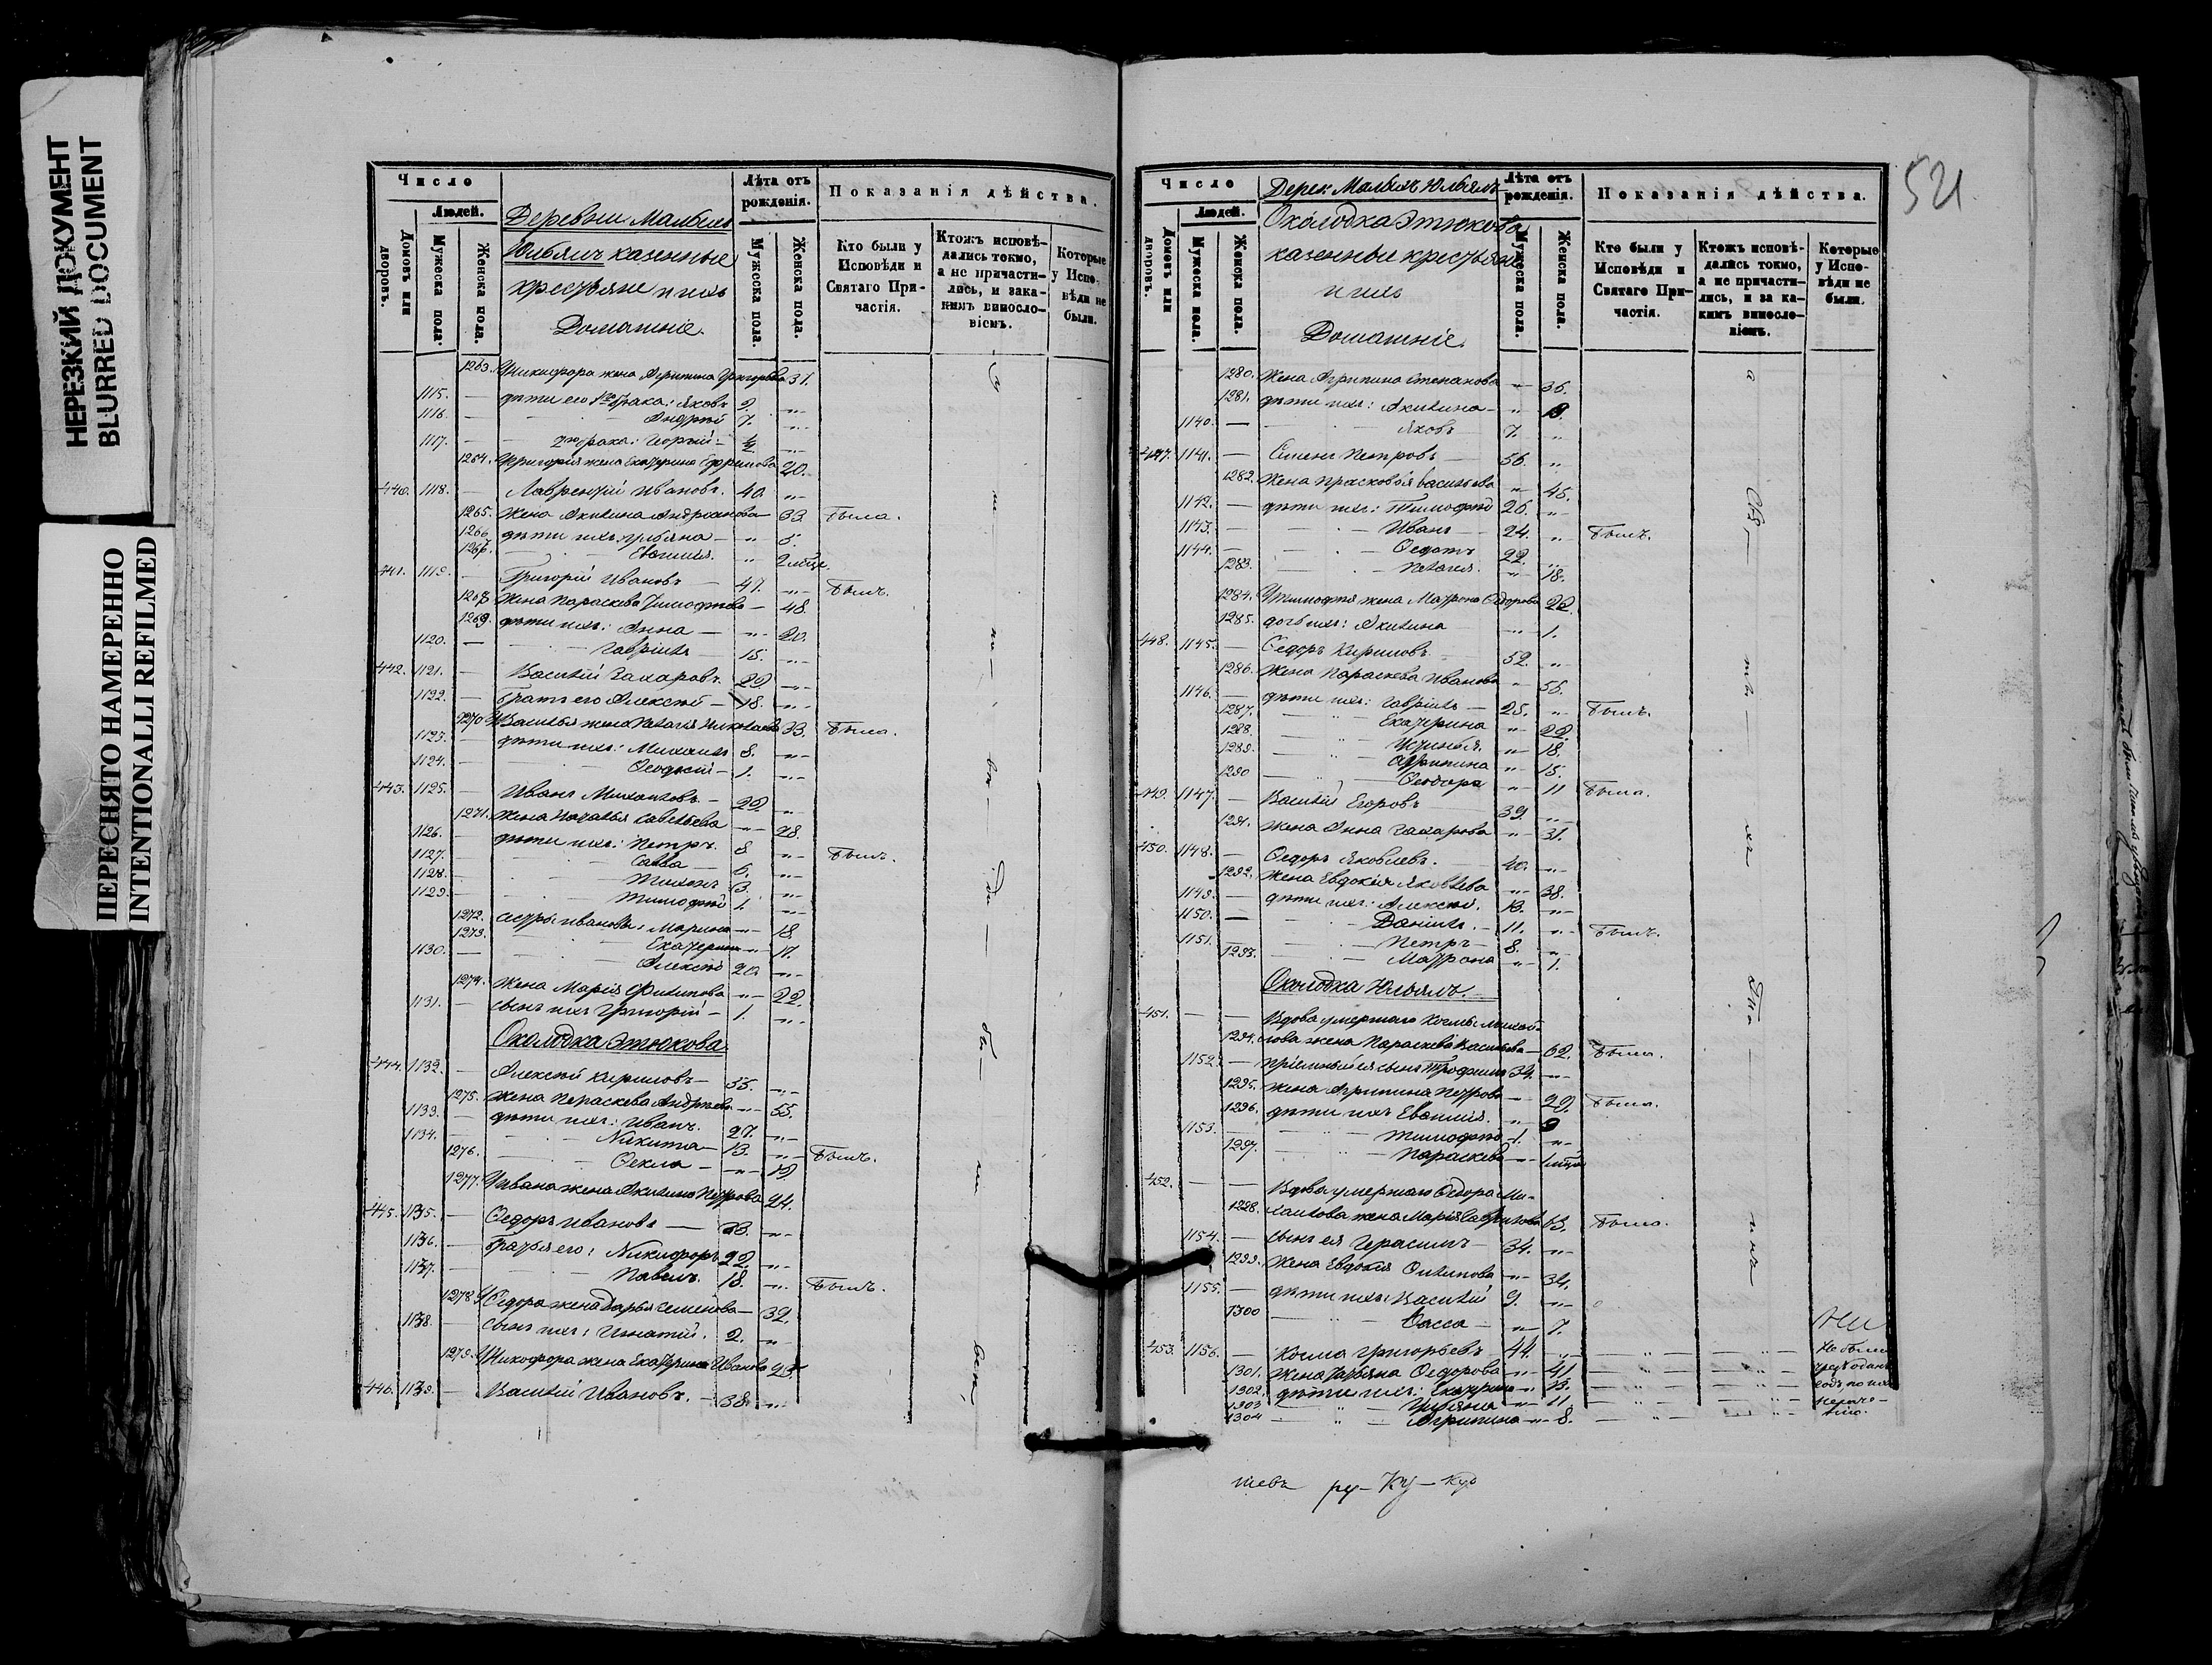 НЕРЕЗКИЙ ДОКУМЕНТ
BLURRED DOCUMENT
ПЕРЕСНЯТО НАМЕРЕННО
INTENTIONALLI REFILMED
Число
Людей.
Домовъ или дворовъ.
Мужеска пола.
Женска пола.
Деревни Малыхъ
казенные
крестьяне и ихъ
Домашніе.
Лѣта отъ рожденія.
Мужеска пола.
Женска пола.
Показанія дѣйства.
Кто были у Исповѣди и Святаго Причастія.
Ктожъ исповѣдались токмо, а не причастились, и закакимъ винословіемъ.
Которые у Исповѣди не были.
1263. У Никифора жена Агрипина Григорьева 31.
1115. — дѣти его 1го брака: Яковъ 9. „
1116. — Андрей 7. „
1117. — брака: Георгій ½ „
1264. У Григорія жена Екатерина Ефремова 20.
440. 1118. — Лаврентій Ивановъ. 40. „
1265. Жена Акилина Андреянова — 33. была.
1266. дѣти ихъ: Ульяна — „ 5.
1267. Евфимія. „ 2 мѣце.
441. 1119. — Григорій Ивановъ — 47. „ былъ.
1268. Жена Параскева Тимофѣева — 48.
1269. дѣти ихъ: Анна — „ 20.
1120. — Гавріилъ — 15. „
442. 1121. — Василій Захаровъ. 22. „
1122. — братъ его Алексѣй — 18. „
1270. У Василья жена Наталія Николаева 33. была.
1123. — дѣти ихъ: Михаилъ 8. „
1124. — Ѳеодосій — 1. „
443. 1125. — Иванъ Михайловъ — 29. „
1271. Жена Наталья Савельева „ 28.
1126. — дѣти ихъ: Петръ. 8. „
1127. — Савва — 6. „ былъ.
1128. — Тихонъ 3. „
1129. — Тимофѣй 1. „
1272. сестры Ивановы: Марина — „ 18.
1273. Екатерина „ 17.
1130. — Алексѣй 20. „
1274. Жена Марія Филипова „ 22.
1131. — сынъ ихъ Григорій — 1. „
Околодка Этюкова.
444. 1132. — Алексѣй Кириловъ — 55. „
1275. Жена Пераскева Андреева „ 55.
1133. — дѣти ихъ: Иванъ. 27. „
1134. — Никита — 13. „ былъ.
1276. Ѳекла — „ 19.
1277. У Ивана жена Акилина Петрова 24.
445. 1135. — Ѳедоръ Ивановъ — 33. „
1136. — братья его: Никифоръ 22. „
1137. — Павелъ. 18. „ былъ.
1278. У Ѳедора жена Дарья Семенова — 32.
1138. — сынъ ихъ: Игнатій. 2. „
1279. У Никифора жена Екатерина Иванова 23.
446. 1139. — Василій Ивановъ. — 38. „
521.
Число
Людей.
Домовъ или дворовъ.
Мужеска пола.
Женска пола.
Дерев. Малыхъ Юльялъ
Околодка Этюкова
казенные крестьяне
и ихъ
Домашніе.
Лѣта отъ рожденія.
Мужеска пола.
Женска пола.
Показанія дѣйства.
Кто были у Исповѣди и Святаго Причастія.
Ктожъ исповѣдались токмо, а не причастились, и за какимъ винословіемъ.
Которые у Исповѣди не были.
1280. Жена Агрипина Степанова „ 36.
1281. дѣти ихъ: Акилина — „
1140. — Яковъ 7. „
447. 1141. — Семенъ Петровъ 56. „
1282. Жена Прасковья Васильева „ 45.
1142. — дѣти ихъ: Тимофѣй 26. „
1143. — Иванъ — 24. „ былъ.
1144. — Ѳедотъ 22. „
1283. Наталія. „ 18.
1284. У Тимофѣя жена Матрона Ѳедорова 22.
1285. дочь ихъ: Акилина „ 1.
448. 1145. — Ѳедоръ Кириловъ 52. „
1286. Жена Параскева Иванова „ 55.
1146. — дѣти ихъ: Гавріилъ — 25. „ былъ.
1287. Екатерина „ 22.
1288. Устинья. „ 18.
1289. Агрипина „ 15.
1290. Ѳеодора „ 11
449. 1147. — Василій Егоровъ 32. „ была.
1291. Жена Анна Захарова „ 31.
450. 1148. — Ѳедоръ Яковлевъ. 40. „
1292. Жена Евдокія Яковлева „ 38.
1149. — дѣти ихъ: Алексѣй. 13. „
1150. — Даніилъ. 11. „ былъ.
1151. — Петръ — 8. „
1293. Матрона „ 1.
Околодка Юльялъ.
451. — — Вдова умершаго Космы Михайлова
1294. жена Параскева Васильева — 62. была.
1152. — пріемный ея сынъ Трофимъ 34. „
1295. Жена Агрипина Петрова — 29. была.
1296. дѣти ихъ Евфимія. „
1153. — Тимофѣй 1. „
1297. Параскева — 1 мѣца
452. — — Вдова умершаго Ѳедора Михайлова
1298. жена Марія Гаврилова 63. была.
1154. — сынъ ея Герасимъ — 34. „
1299. Жена Евдокія Филипова „ 34.
1155. — дѣти ихъ: Василій 9. „
1300 Васса — „ 7.
453. 1156. — Косма Григорьевъ — 44. „ не были
1301. Жена Татьяна Ѳедорова — „ 41
1302. дѣти ихъ: Екатерина „ 13.
1303 Ульяна „ 11.
1304 Агрипина „ 8.